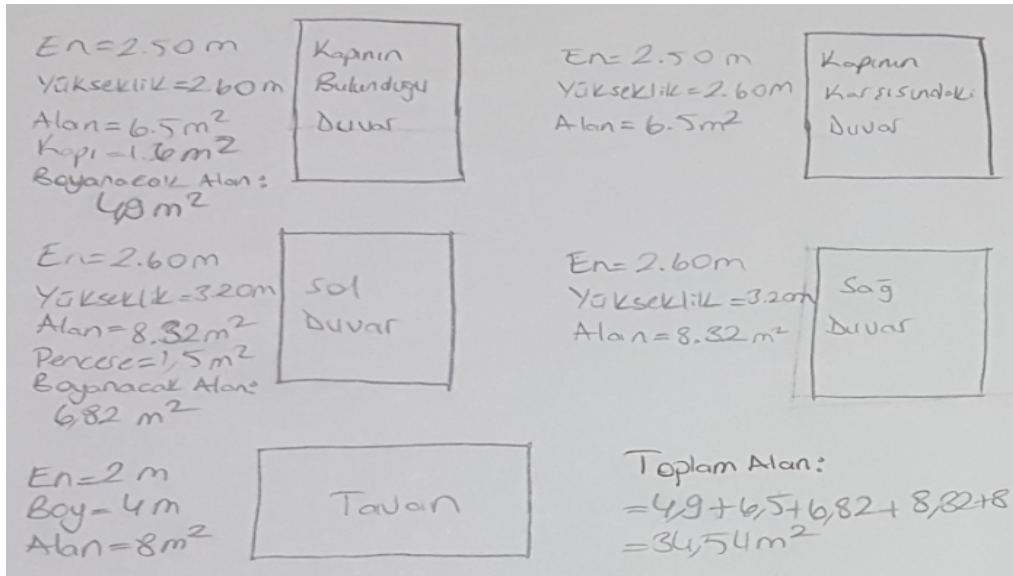 En=2.50 m
Yükseklik=2.60 m
Alan=6.5m²
Kapı=1.6 m²
Boyanacak Alan:
4,9 m²
Kapının
Bulunduğu
Duvar
En= 2.50 m
Yükseklik=2.60m
Alan= 6.5m²
Kapının
Karşısındaki
Duvar
En=2.60m
Yükseklik=3.20m
Alan=8.32m²
Pencere=1,5m²
Boyanacak Alan:
6,82 m²
Sol
Duvar
En= 2.60m
Yükseklik=3.20m
Alan=8.32m²
Sağ
Duvar
En=2 m
Boy=4m
Alan=8m²
Tavan
Toplam Alan:
=4,9+6,5+6,82+8,32+8
=34,54m²